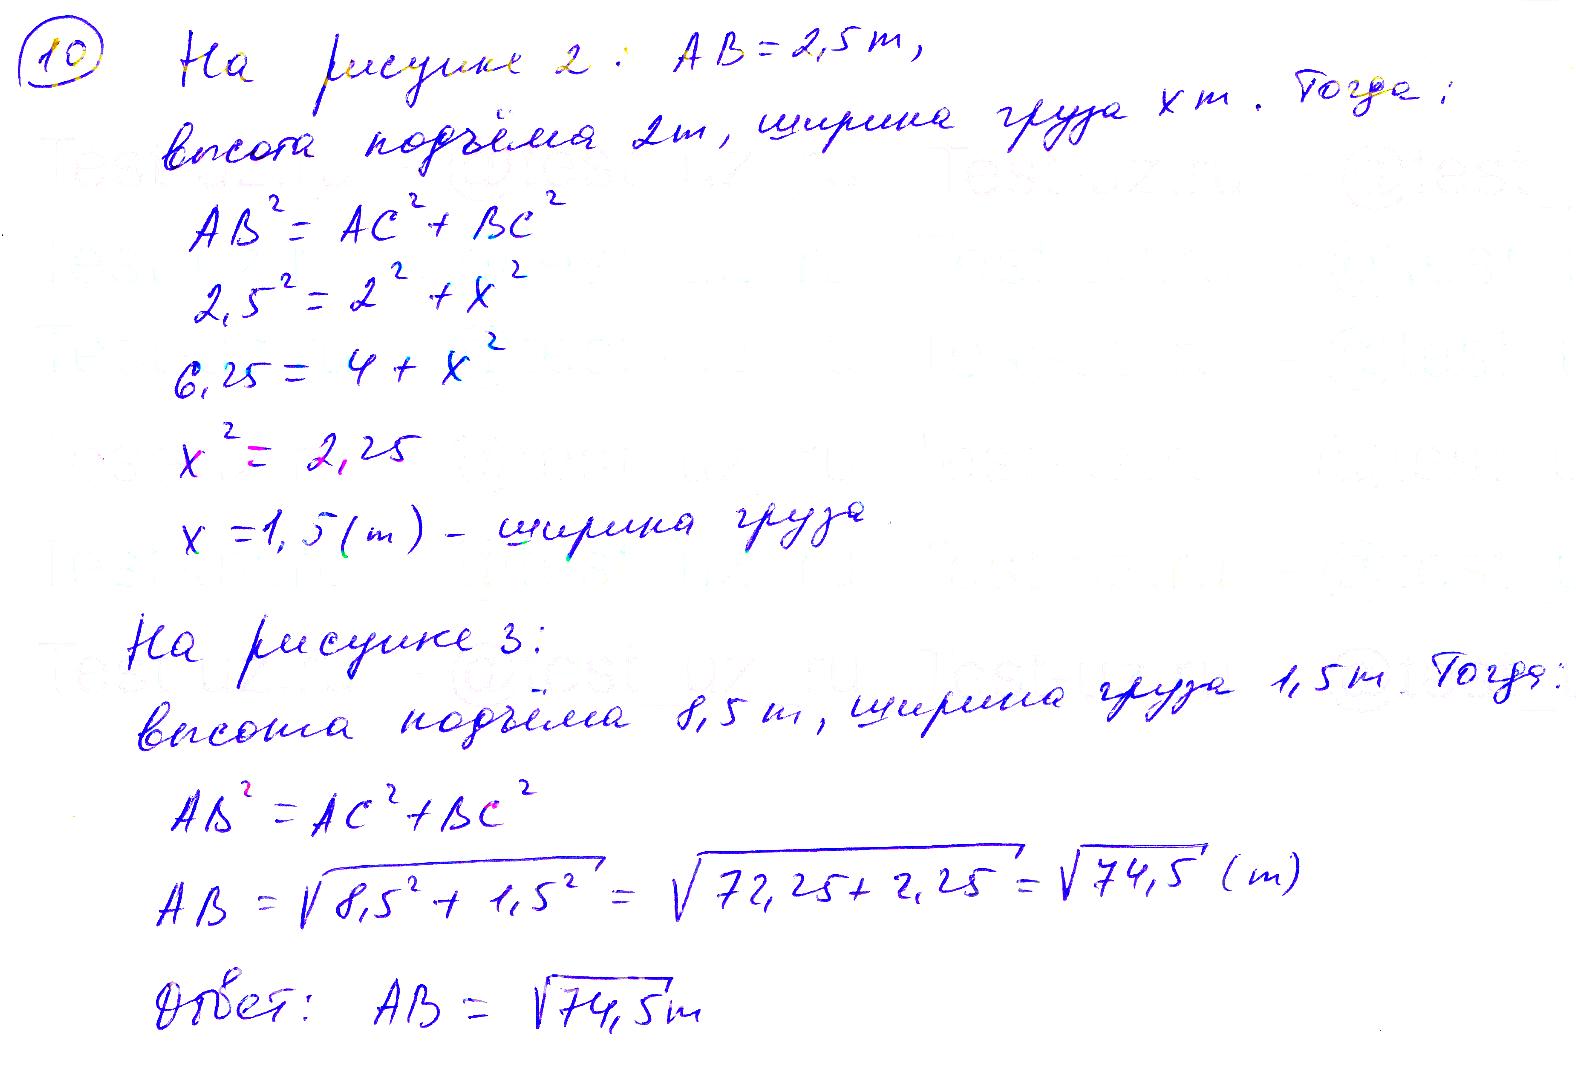 10 На рисунке 2: AB = 2,5 m,
высота подъёма 2m, ширина груза x m. Тогда:
AB² = AC² + BC²
2,5² = 2² + x²
6,25 = 4 + x²
x² = 2,25
x = 1,5 (m) – ширина груза
На рисунке 3:
высота подъёма 8,5 m, ширина груза 1,5 m. Тогда:
AB² = AC² + BC²
AB = √(8,5² + 1,5²) = √(72,25 + 2,25) = √74,5 (m)
Ответ: AB = √74,5 m